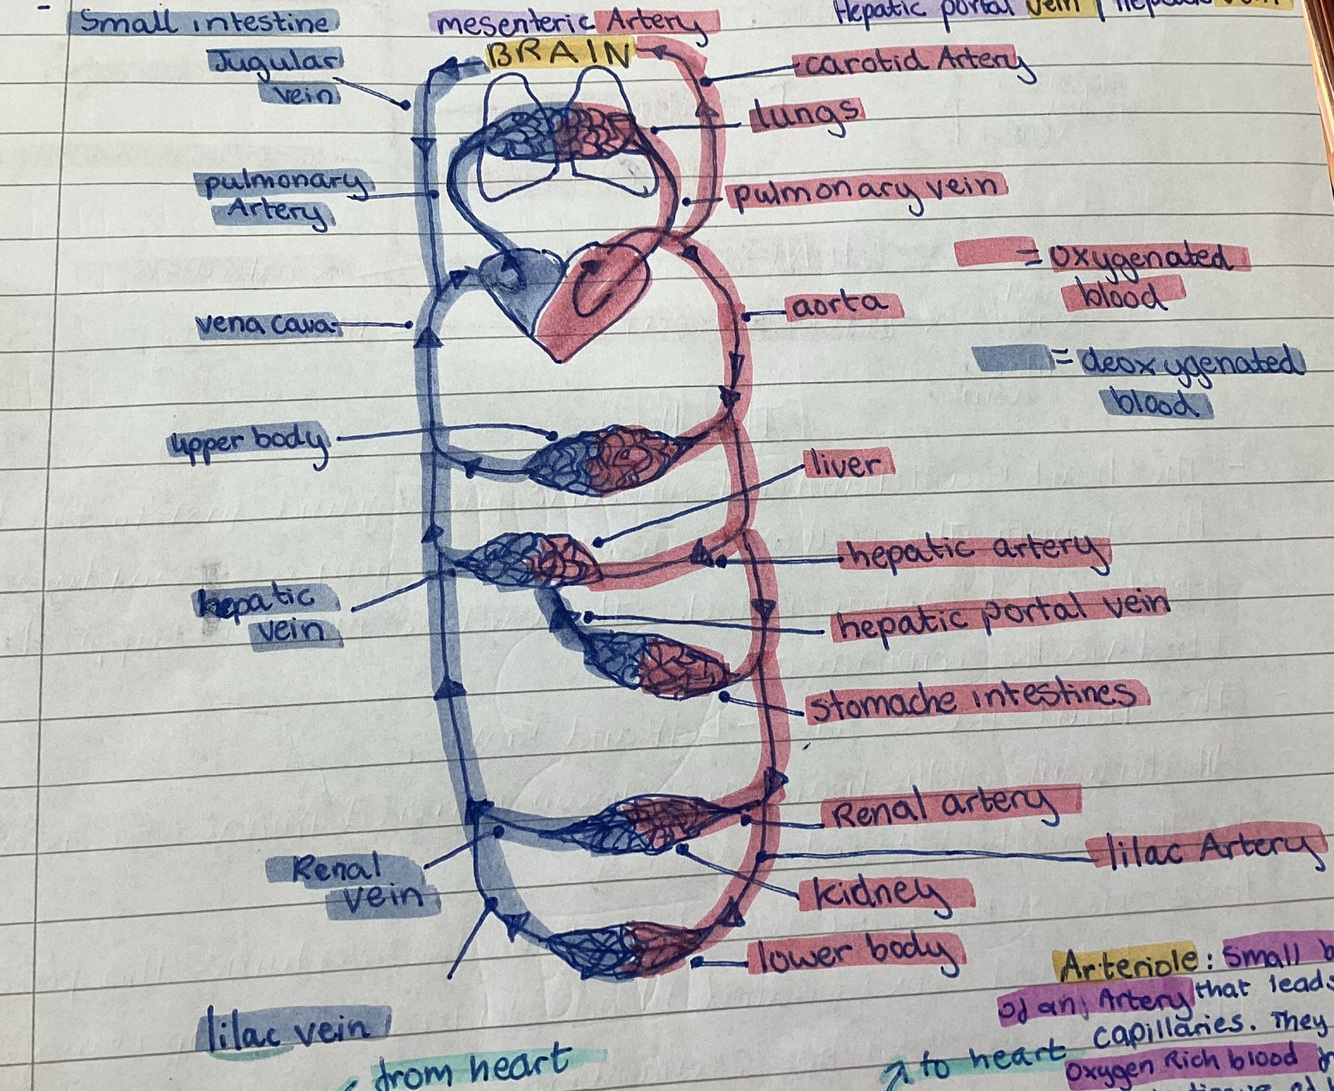 Small intestine
mesenteric Artery
Hepatic portal vein
Jugular
vein
BRAIN
carotid Artery
lungs
pulmonary
Artery
pulmonary vein
= oxygenated
blood
vena cava
aorta
= deoxygenated
blood
upper body
liver
hepatic artery
hepatic
vein
hepatic portal vein
stomache intestines
Renal artery
lilac Artery
Renal
vein
kidney
lower body
lilac vein
from heart
Arteriole: Small
of an Artery that leads
capillaries. They
to heart
Oxygen Rich blood